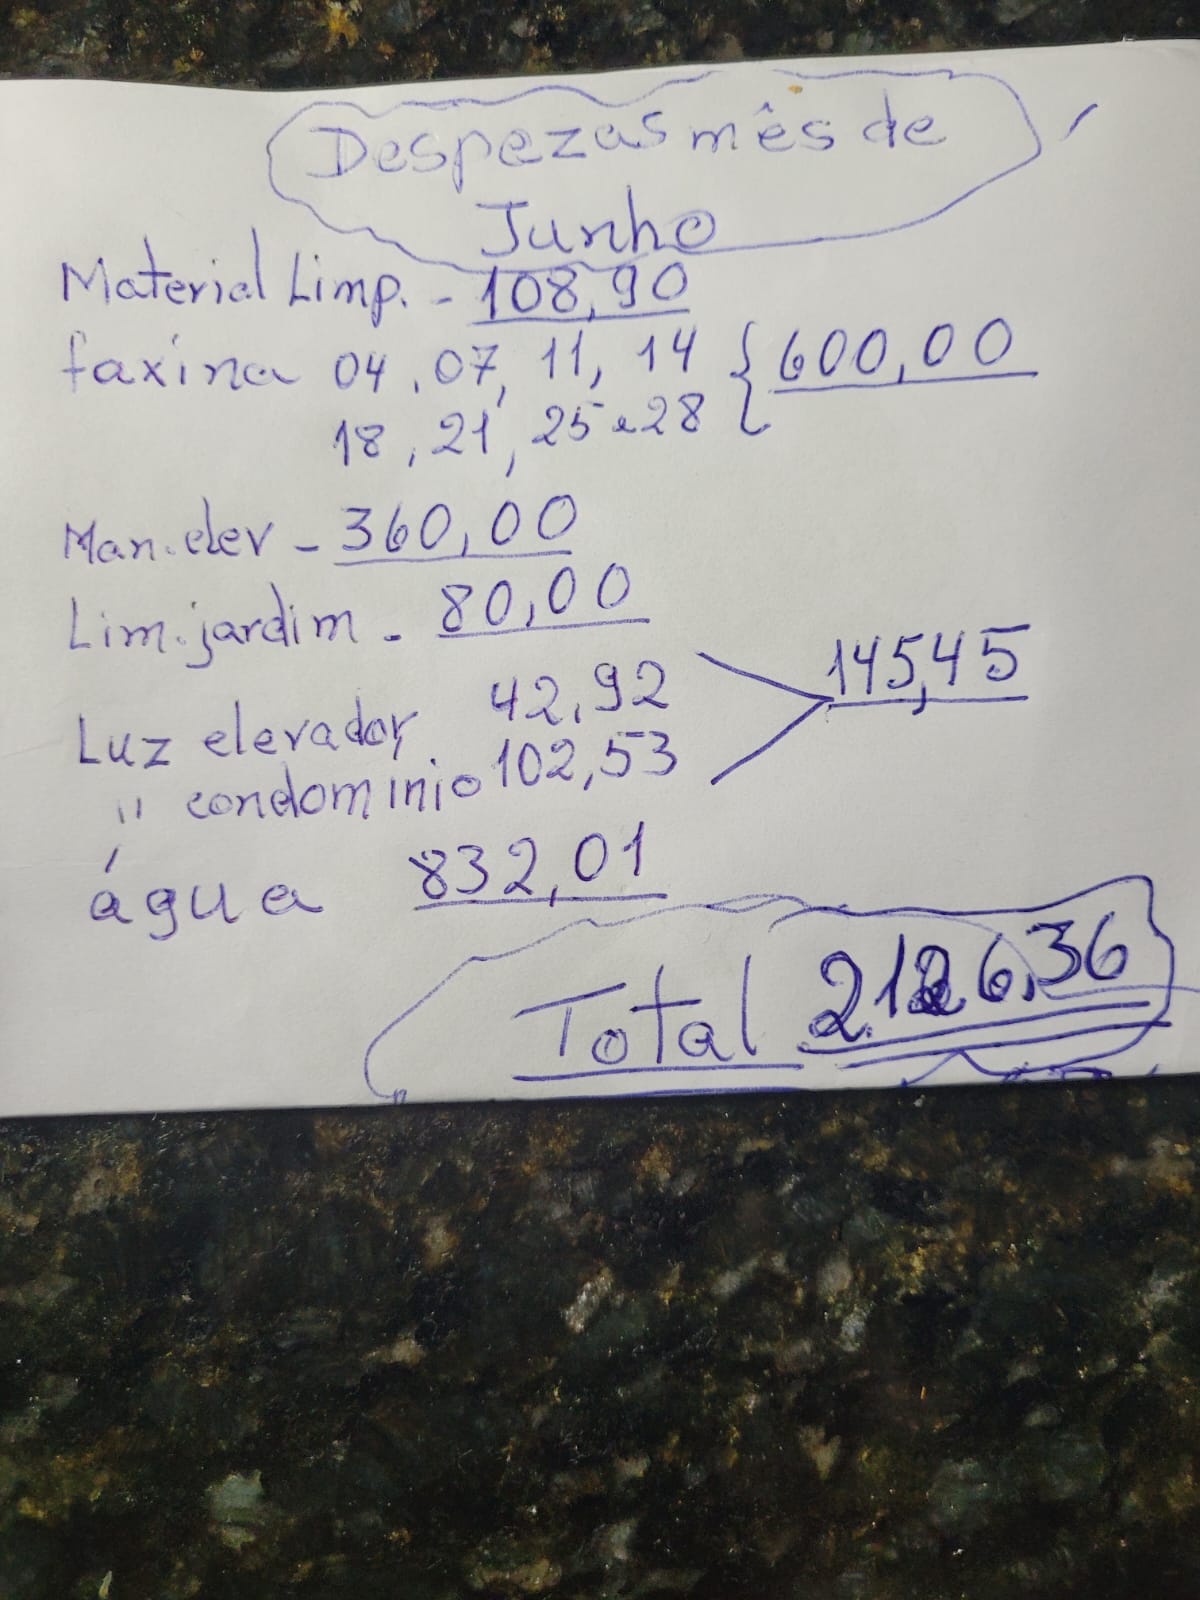 Despezas mês de
Junho
Material Limp. - 108,90
faxina 04, 07, 11, 14 { 600,00
18, 21, 25 e 28
Man. elev - 360,00
Lim. jardim - 80,00
Luz elevador 42,92
145,45
" condominio 102,53
água 832,01
Total 2.126,36